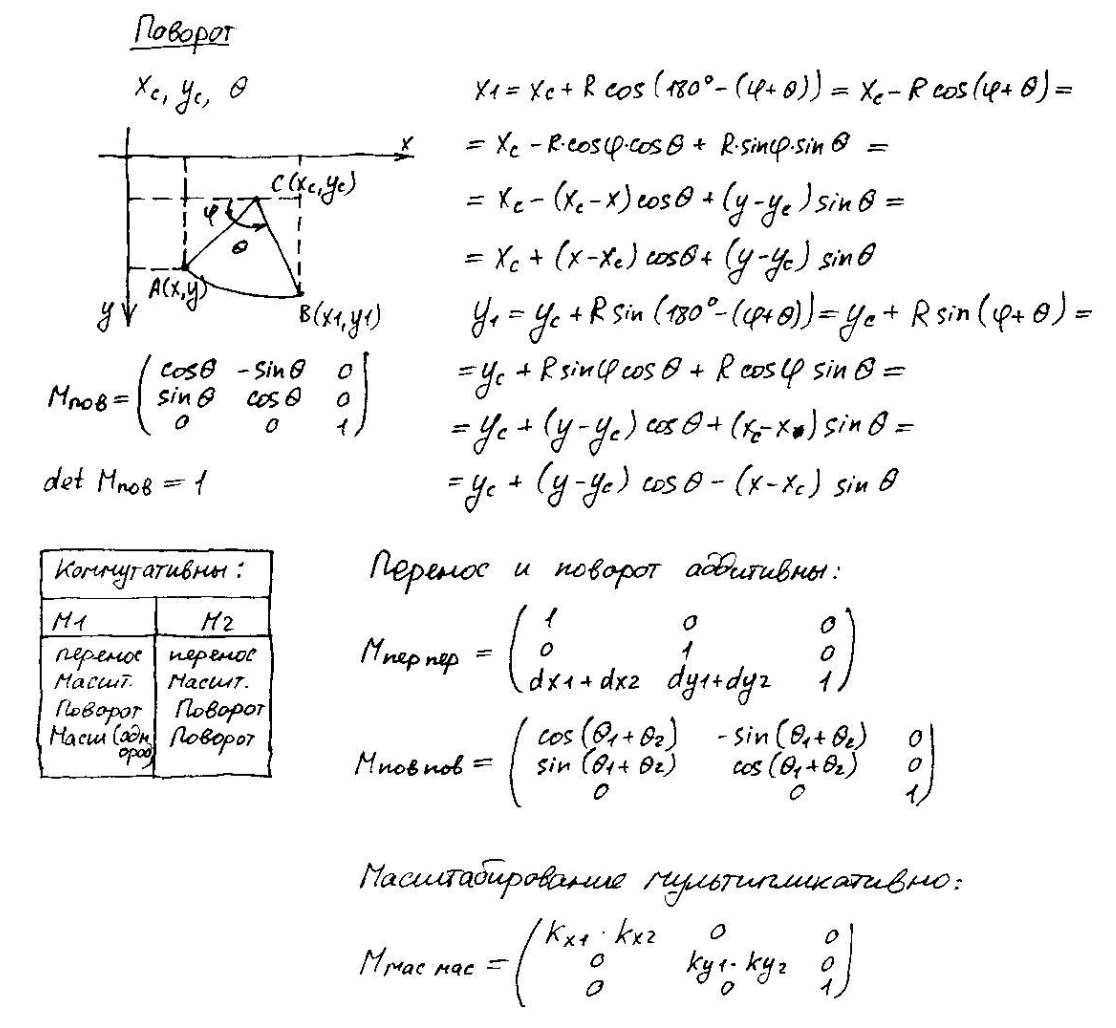 Поворот
xc, yc, θ
x
C(xc,yc)
φ
θ
A(x,y)
y
B(x1,y1)
Mпов = ( cosθ -sinθ 0
sinθ cosθ 0
0 0 1 )
det Mпов = 1
x1 = xc + R cos(180°-(φ+θ)) = xc - R cos(φ+θ) =
= xc - R·cosφ·cosθ + R·sinφ·sinθ =
= xc - (xc-x)cosθ + (y-yc)sinθ =
= xc + (x-xc) cosθ + (y-yc) sinθ
y1 = yc + R sin(180°-(φ+θ)) = yc + R sin(φ+θ) =
= yc + R sinφ cosθ + R cosφ sinθ =
= yc + (y-yc) cosθ + (xc-x) sinθ =
= yc + (y-yc) cosθ - (x-xc) sinθ
Коммутативны:
M1 M2
перенос перенос
Масшт. Масшт.
Поворот Поворот
Масш (одн Поворот
ород)
Перенос и поворот аддитивны:
Mпер пер = ( 1 0 0
0 1 0
dx1+dx2 dy1+dy2 1 )
Mпов пов = ( cos(θ1+θ2) -sin(θ1+θ2) 0
sin(θ1+θ2) cos(θ1+θ2) 0
0 0 1 )
Масштабирование мультипликативно:
Mмас мас = ( kx1·kx2 0 0
0 ky1·ky2 0
0 0 1 )